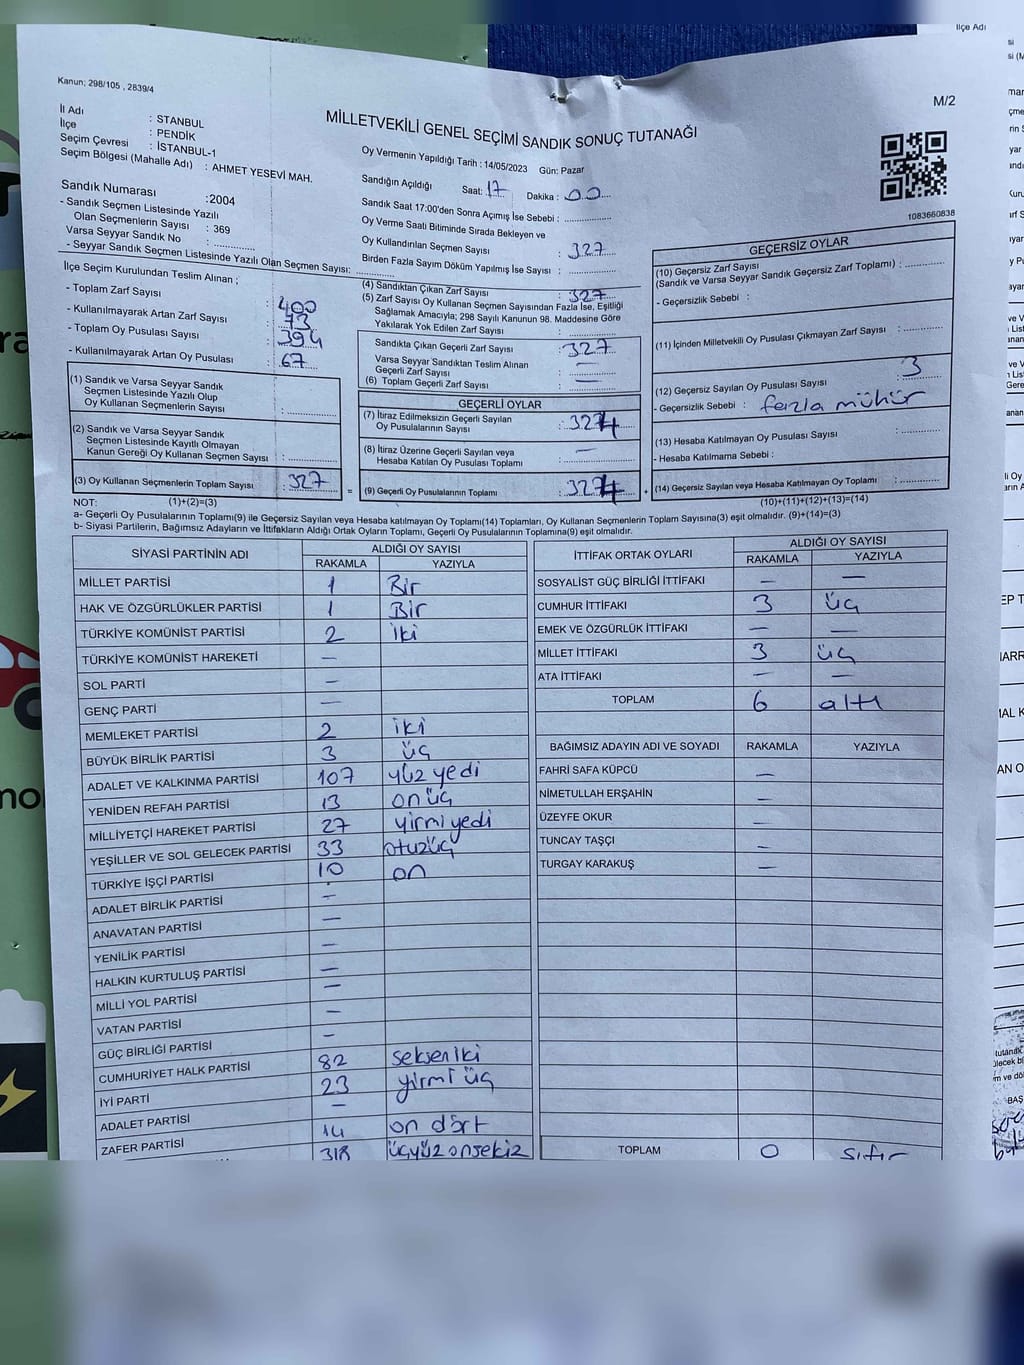 Kanun; 298/105 , 2839/4
M/2
İl Adı : STANBUL
İlçe : PENDİK
Seçim Çevresi : İSTANBUL-1
Seçim Bölgesi (Mahalle Adı) : AHMET YESEVİ MAH.
MİLLETVEKİLİ GENEL SEÇİMİ SANDIK SONUÇ TUTANAĞI
Oy Vermenin Yapıldığı Tarih : 14/05/2023 Gün: Pazar
Sandık Numarası :2004
- Sandık Seçmen Listesinde Yazılı
Olan Seçmenlerin Sayısı : 369
Varsa Seyyar Sandık No : ..............
- Seyyar Sandık Seçmen Listesinde Yazılı Olan Seçmen Sayısı: ..............
Sandığın Açıldığı Saat: 17 Dakika : 00
Sandık Saat 17:00'den Sonra Açımış İse Sebebi : ..............
Oy Verme Saati Bitiminde Sırada Bekleyen ve
Oy Kullandırılan Seçmen Sayısı : 327
Birden Fazla Sayım Döküm Yapılmış İse Sayısı : ..............
1083660838
İlçe Seçim Kurulundan Teslim Alınan ;
- Toplam Zarf Sayısı : 400
- Kullanılmayarak Artan Zarf Sayısı : 73
- Toplam Oy Pusulası Sayısı : 394
- Kullanılmayarak Artan Oy Pusulası : 67
(1) Sandık ve Varsa Seyyar Sandık
Seçmen Listesinde Yazılı Olup
Oy Kullanan Seçmenlerin Sayısı : ..............
(2) Sandık ve Varsa Seyyar Sandık
Seçmen Listesinde Kayıtlı Olmayan
Kanun Gereği Oy Kullanan Seçmen Sayısı : ..............
(3) Oy Kullanan Seçmenlerin Toplam Sayısı : 327
(4) Sandıktan Çıkan Zarf Sayısı : 327
(5) Zarf Sayısı Oy Kullanan Seçmen Sayısından Fazla İse, Eşitliği
Sağlamak Amacıyla; 298 Sayılı Kanunun 98. Maddesine Göre
Yakılarak Yok Edilen Zarf Sayısı : ..............
Sandıkta Çıkan Geçerli Zarf Sayısı : 327
Varsa Seyyar Sandıktan Teslim Alınan
Geçerli Zarf Sayısı : —
(6) Toplam Geçerli Zarf Sayısı : —
GEÇERLİ OYLAR
(7) İtiraz Edilmeksizin Geçerli Sayılan
Oy Pusulalarının Sayısı : 324
(8) İtiraz Üzerine Geçerli Sayılan veya
Hesaba Katılan Oy Pusulası Toplamı : —
(9) Geçerli Oy Pusulalarının Toplamı : 324
GEÇERSİZ OYLAR
(10) Geçersiz Zarf Sayısı
(Sandık ve Varsa Seyyar Sandık Geçersiz Zarf Toplamı) : ..............
- Geçersizlik Sebebi :
(11) İçinden Milletvekili Oy Pusulası Çıkmayan Zarf Sayısı : ..............
(12) Geçersiz Sayılan Oy Pusulası Sayısı : 3
- Geçersizlik Sebebi : fazla mühür
(13) Hesaba Katılmayan Oy Pusulası Sayısı : ..............
- Hesaba Katılmama Sebebi :
(14) Geçersiz Sayılan veya Hesaba Katılmayan Oy Toplamı : ..............
NOT: (1)+(2)=(3) (10)+(11)+(12)+(13)=(14)
a- Geçerli Oy Pusulalarının Toplamı(9) ile Geçersiz Sayılan veya Hesaba katılmayan Oy Toplamı(14) Toplamları, Oy Kullanan Seçmenlerin Toplam Sayısına(3) eşit olmalıdır. (9)+(14)=(3)
b- Siyasi Partilerin, Bağımsız Adayların ve İttifakların Aldığı Ortak Oyların Toplamı, Geçerli Oy Pusulalarının Toplamına(9) eşit olmalıdır.
SİYASİ PARTİNİN ADI ALDIĞI OY SAYISI
RAKAMLA YAZIYLA
MİLLET PARTİSİ 1 Bir
HAK VE ÖZGÜRLÜKLER PARTİSİ 1 Bir
TÜRKİYE KOMÜNİST PARTİSİ 2 iki
TÜRKİYE KOMÜNİST HAREKETİ —
SOL PARTİ —
GENÇ PARTİ —
MEMLEKET PARTİSİ 2 iki
BÜYÜK BİRLİK PARTİSİ 3 üç
ADALET VE KALKINMA PARTİSİ 107 yüz yedi
YENİDEN REFAH PARTİSİ 13 onüç
MİLLİYETÇİ HAREKET PARTİSİ 27 yirmiyedi
YEŞİLLER VE SOL GELECEK PARTİSİ 33 otuzüç
TÜRKİYE İŞÇİ PARTİSİ 10 on
ADALET BİRLİK PARTİSİ —
ANAVATAN PARTİSİ —
YENİLİK PARTİSİ —
HALKIN KURTULUŞ PARTİSİ —
MİLLİ YOL PARTİSİ —
VATAN PARTİSİ —
GÜÇ BİRLİĞİ PARTİSİ —
CUMHURİYET HALK PARTİSİ 82 seksen iki
İYİ PARTİ 23 yirmi üç
ADALET PARTİSİ —
ZAFER PARTİSİ 14 on dört
318 üçyüz onsekiz
İTTİFAK ORTAK OYLARI ALDIĞI OY SAYISI
RAKAMLA YAZIYLA
SOSYALİST GÜÇ BİRLİĞİ İTTİFAKI — —
CUMHUR İTTİFAKI 3 üç
EMEK VE ÖZGÜRLÜK İTTİFAKI — —
MİLLET İTTİFAKI 3 üç
ATA İTTİFAKI — —
TOPLAM 6 altı
BAĞIMSIZ ADAYIN ADI VE SOYADI RAKAMLA YAZIYLA
FAHRİ SAFA KÜPCÜ —
NİMETULLAH ERŞAHİN —
ÜZEYFE OKUR —
TUNCAY TAŞÇI —
TURGAY KARAKUŞ —
TOPLAM 0 sıfır
İlçe Adı